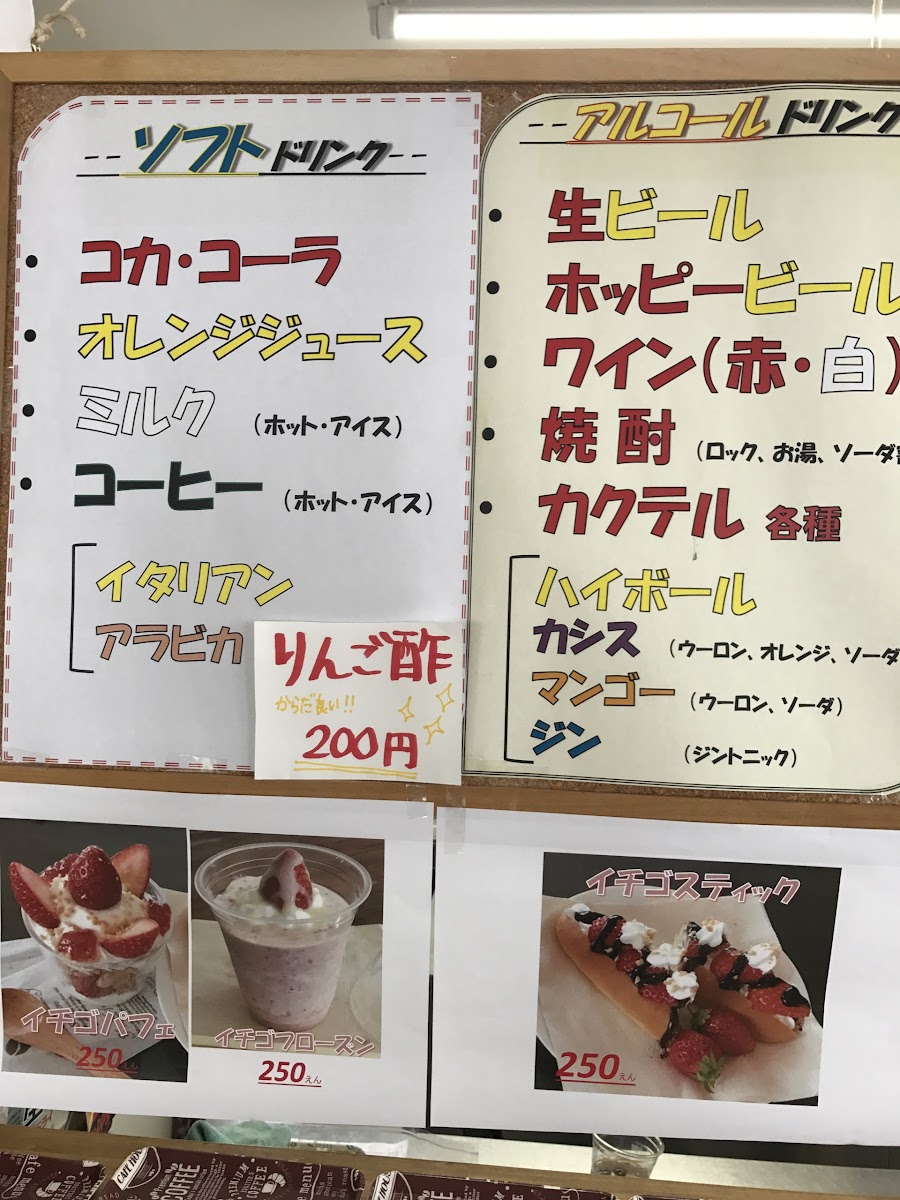 --ソフトドリンク--
・コカ・コーラ
・オレンジジュース
・ミルク (ホット・アイス)
・コーヒー (ホット・アイス)
イタリアン
アラビカ
りんご酢
からだ良い!!
200円
--アルコールドリンク
・生ビール
・ホッピービール
・ワイン(赤・白)
・焼酎 (ロック、お湯、ソーダ割
・カクテル 各種
ハイボール
カシス (ウーロン、オレンジ、ソーダ
マンゴー (ウーロン、ソーダ)
ジン (ジントニック)
イチゴパフェ
250えん
イチゴフローズン
250えん
イチゴスティック
250えん